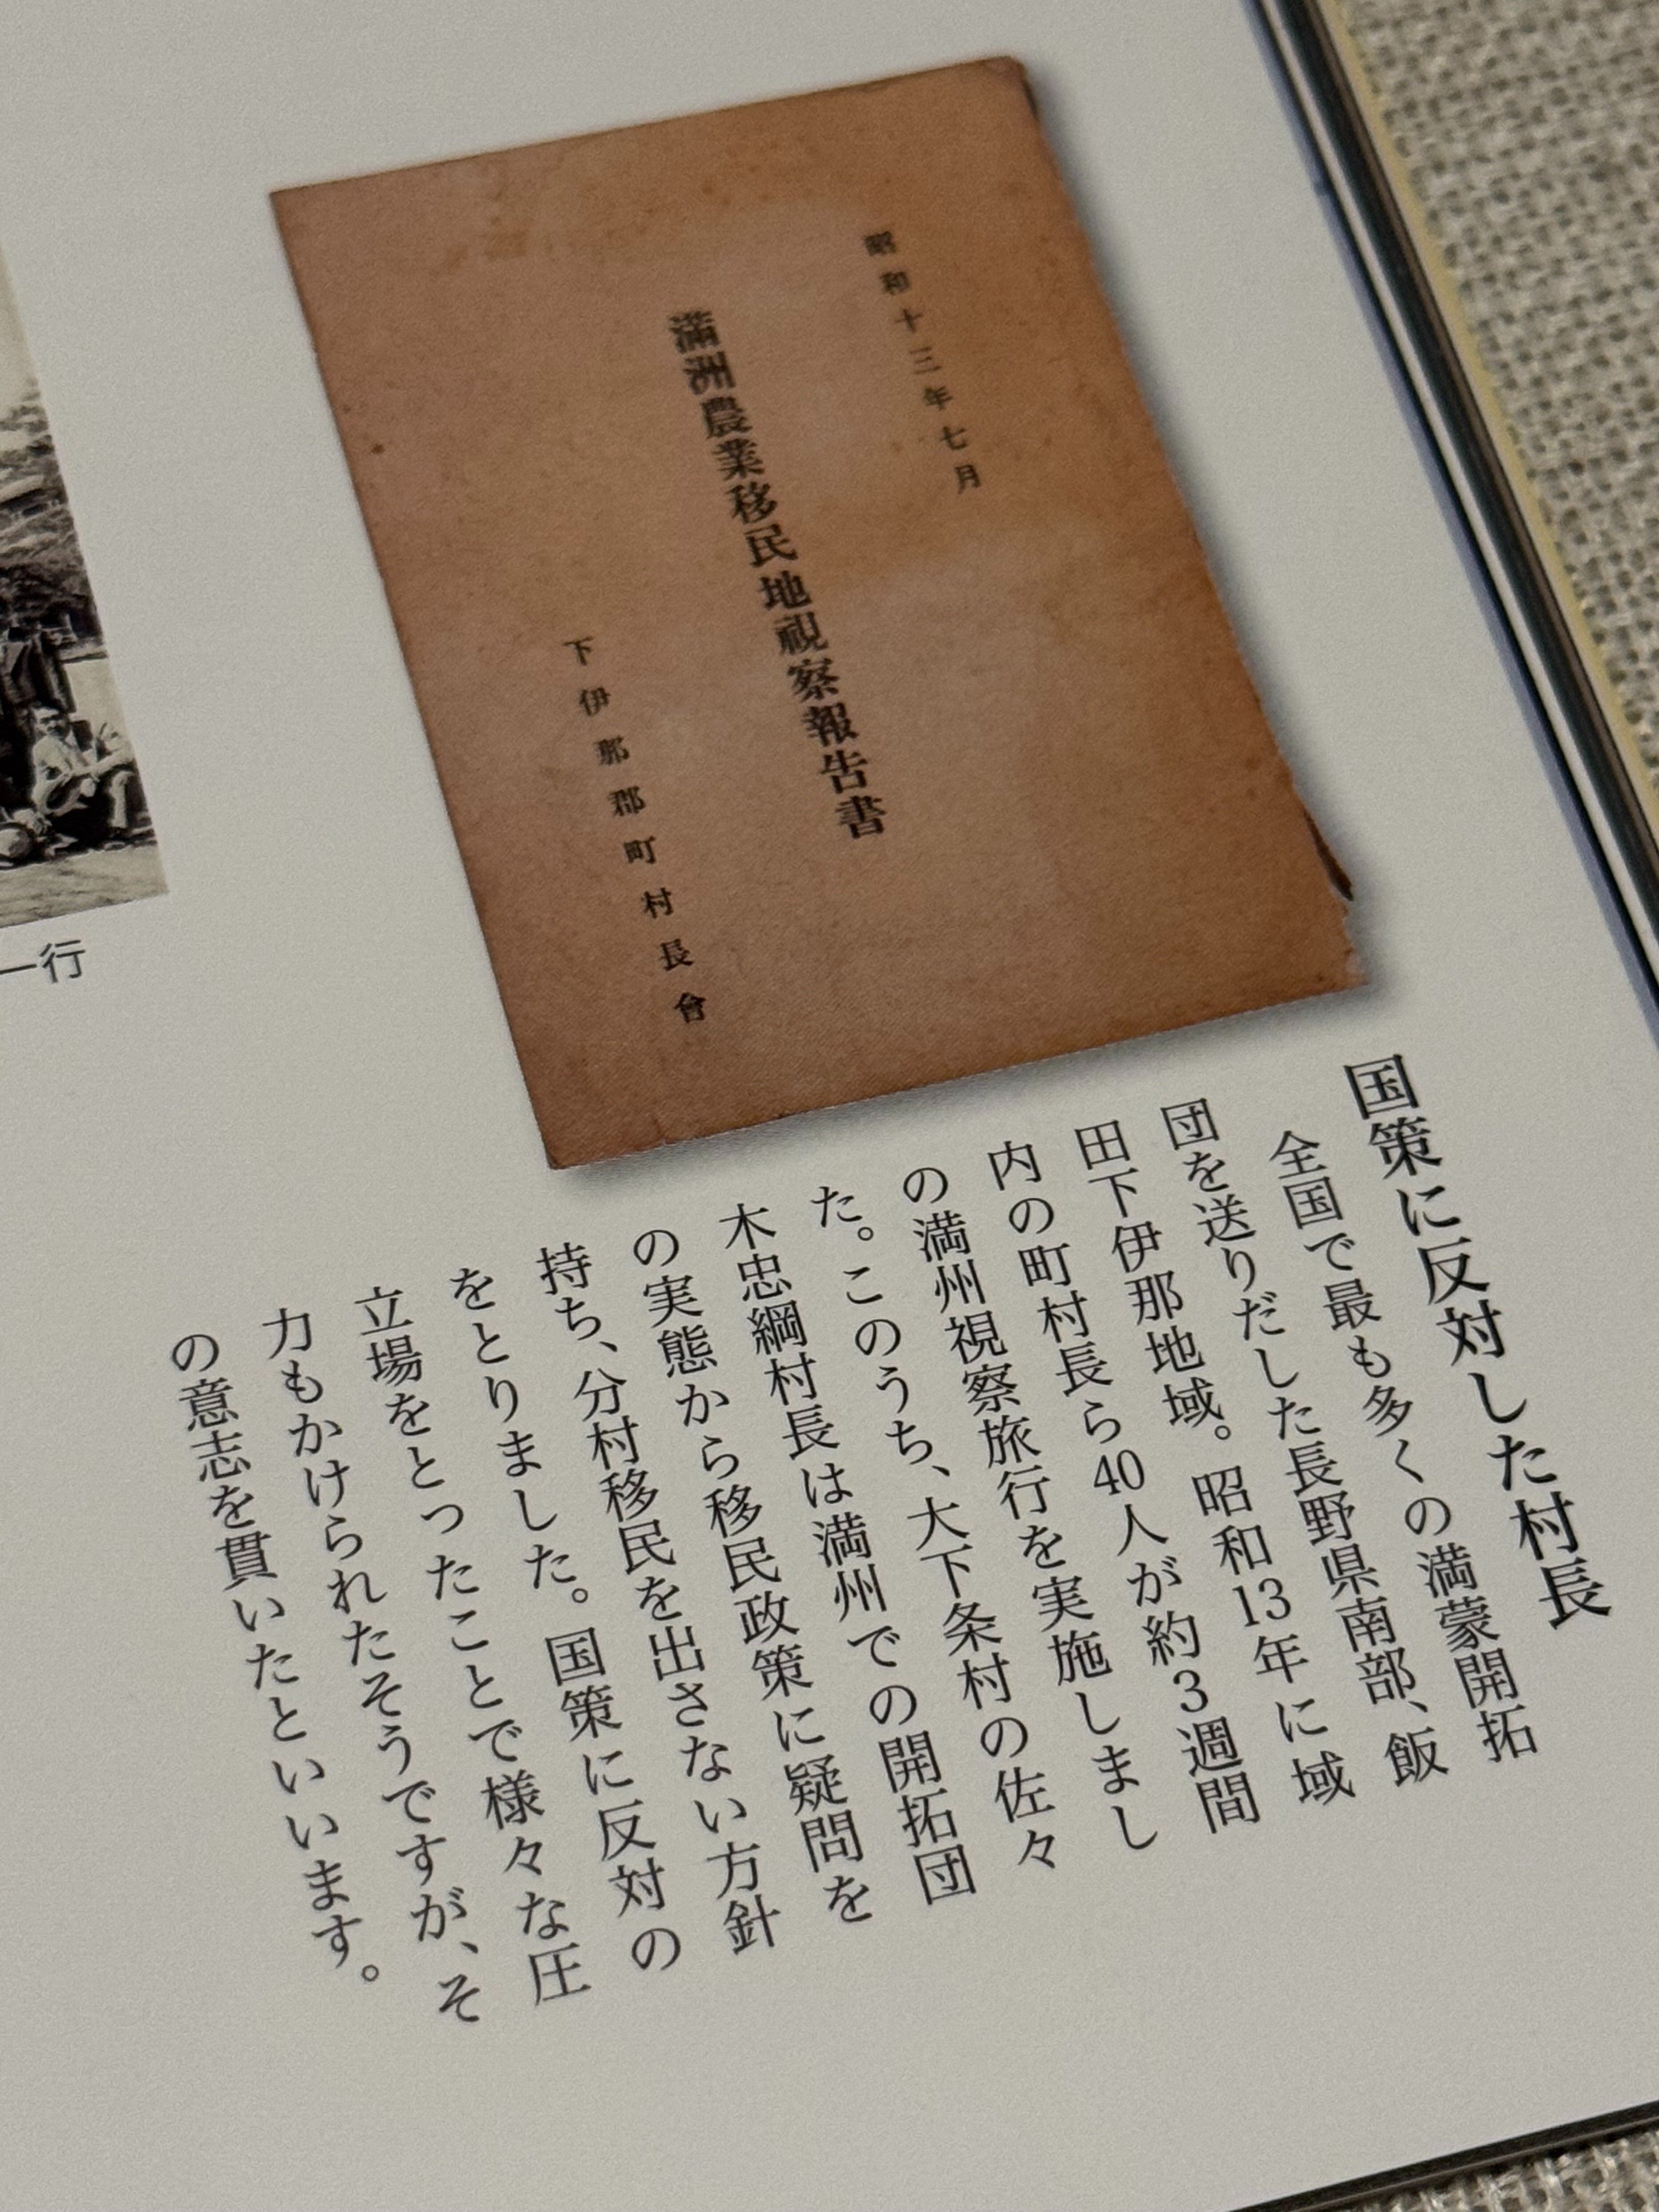 昭和十三年七月
満洲農業移民地視察報告書
下伊那郡町村長會
一行
国策に反対した村長
全国で最も多くの満蒙開拓
団を送りだした長野県南部、飯
田下伊那地域。昭和13年に域
内の町村長ら40人が約3週間
の満州視察旅行を実施しまし
た。このうち、大下条村の佐々
木忠綱村長は満州での開拓団
の実態から移民政策に疑問を
持ち、分村移民を出さない方針
をとりました。国策に反対の
立場をとったことで様々な圧
力もかけられたそうですが、そ
の意志を貫いたといいます。